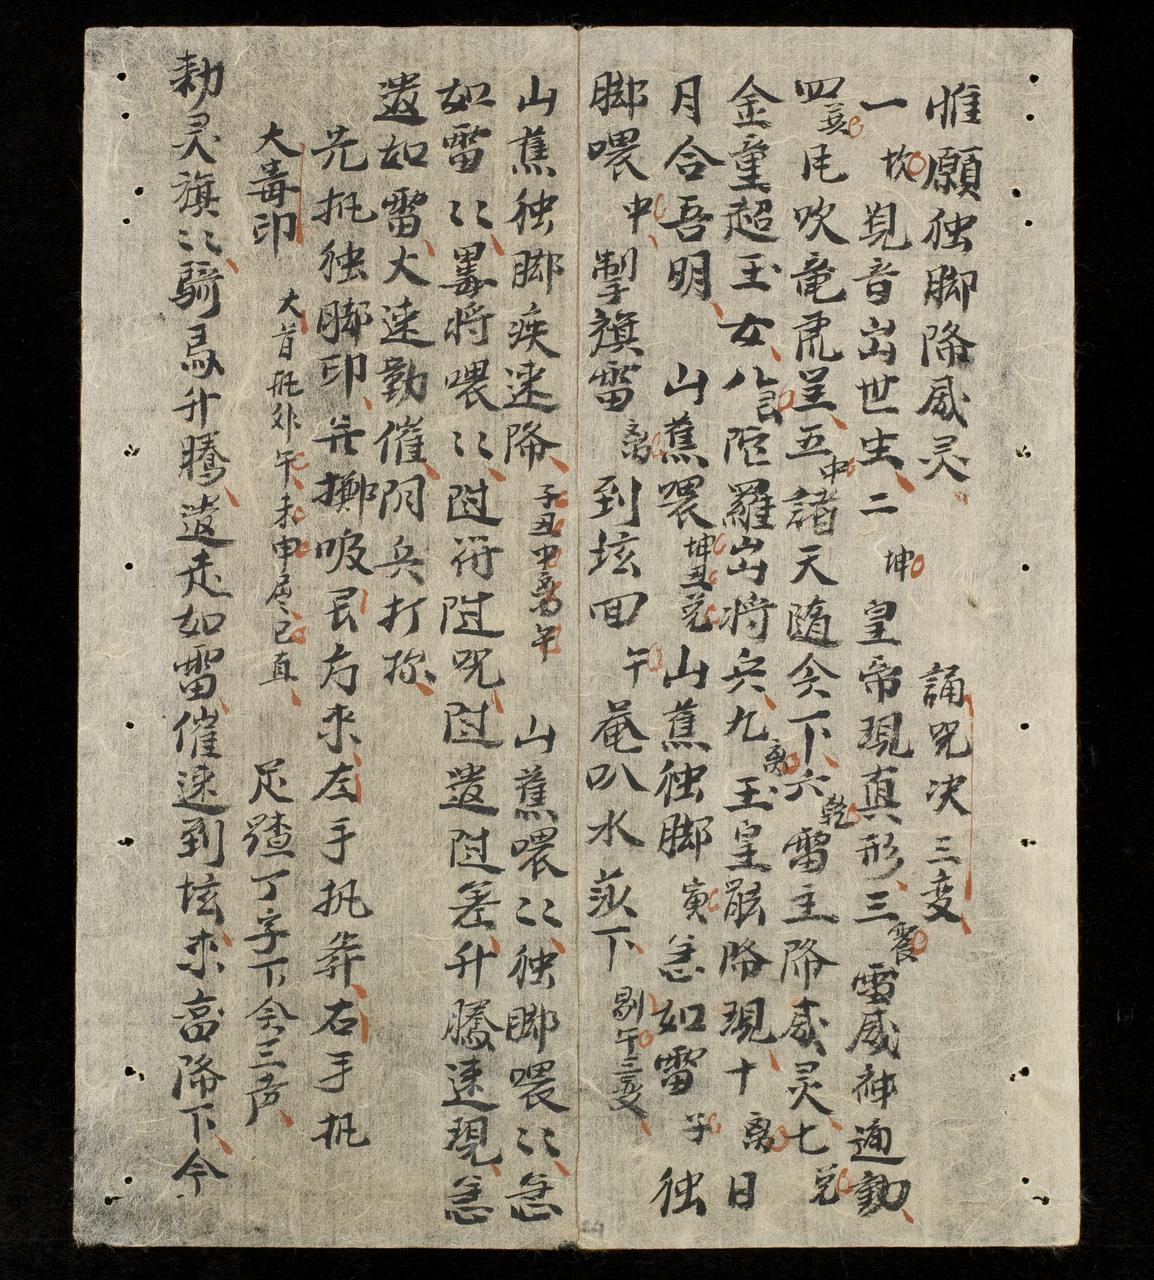 惟願独脚降威灵 誦咒决三变
一坎覌音出世虫二坤皇帝現真形三震雷威神通動
四巽风吹竜虎呈五中諸天随令下六乾雷主降威灵七兑
金童超玉女八艮陀羅出将兵九离玉皇 降現十离日
月合吾明 山蕉喂坤丑兑山蕉独脚寅急如雷子独
脚喂中掣旗雷离到坛回午菴叭水 下 午三变
山蕉独脚疾速降子丑中离午 山蕉喂〻独脚喂〻急
如雷〻 将喂〻 符 咒 遣 差升騰速現急
遣如雷火速勤催阴兵打 
先执独脚印并擲吸艮方来左手执 右手执
大毒印 大首 外午未申屈〻巳直 足踏丁字下令三声
勅灵旗〻騎馬升騰遣走如雷催速到坛来 降下令